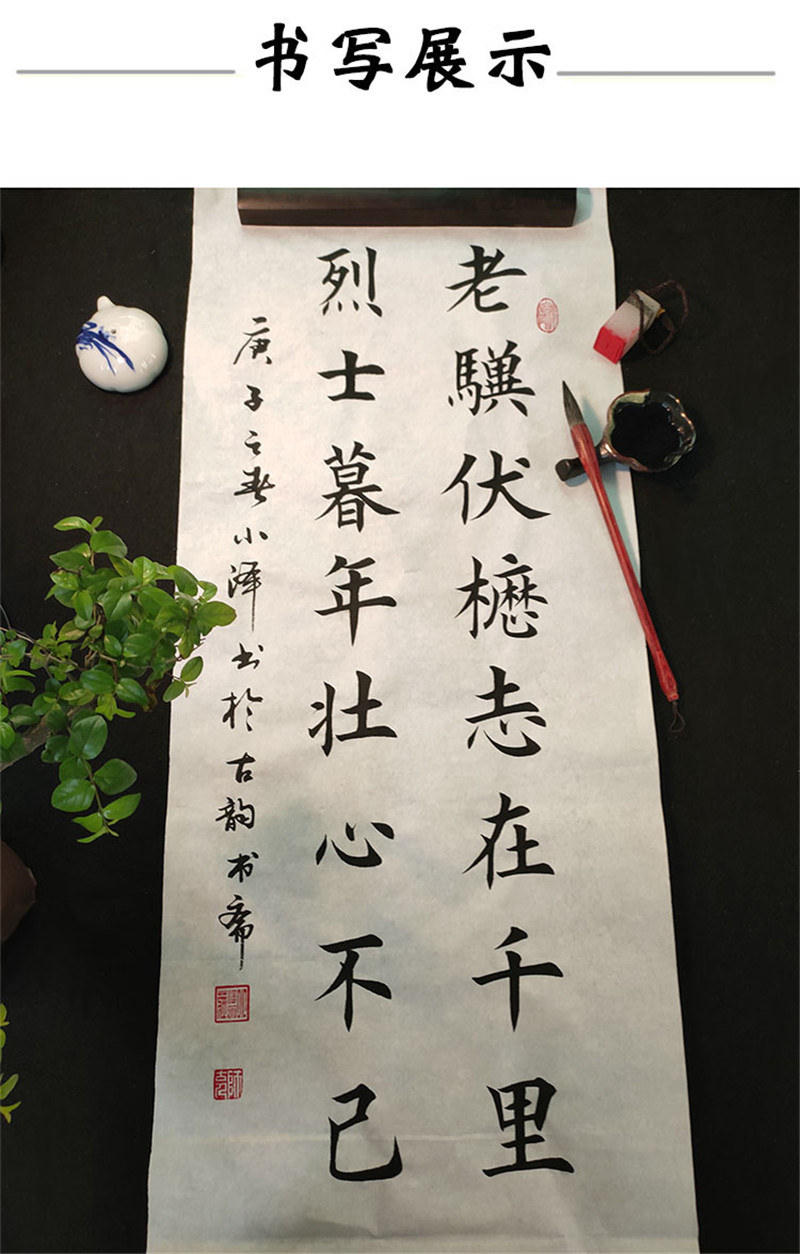 书写展示
老驥伏櫪志在千里
烈士暮年壮心不已
庚子之春小泽书於古韵书斋